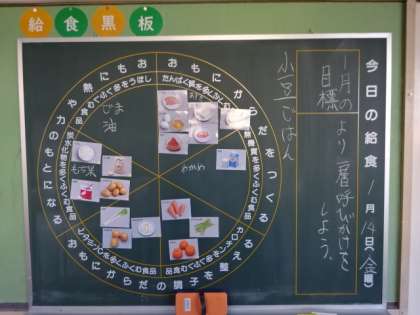 給食黒板
今日の給食 1月14日(金曜)
1月の
目標
より一層呼びかけを
しよう。
小豆ごはん
おもにからだをつくる
おもにからだの調子を整える
おもに熱や力のもとになる
たんぱく質を多くふくむ食品
無機質を多くふくむ食品
カロテンを多くふくむ食品
ビタミンCを多くふくむ食品
炭水化物を多くふくむ食品
しぼうを多くふくむ食品
ごま
油
わかめ